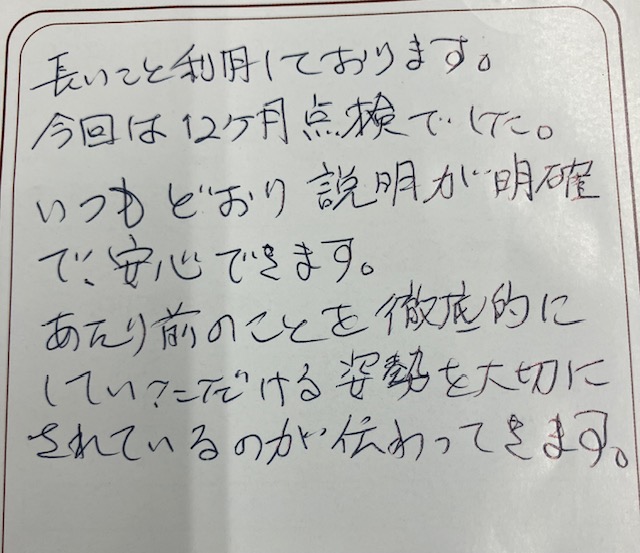 長いこと利用しております。
今回は12ケ月点検でした。
いつもどおり説明が明確
で、安心できます。
あたり前のことを徹底的に
していただける姿勢を大切に
されているのが伝わってきます。